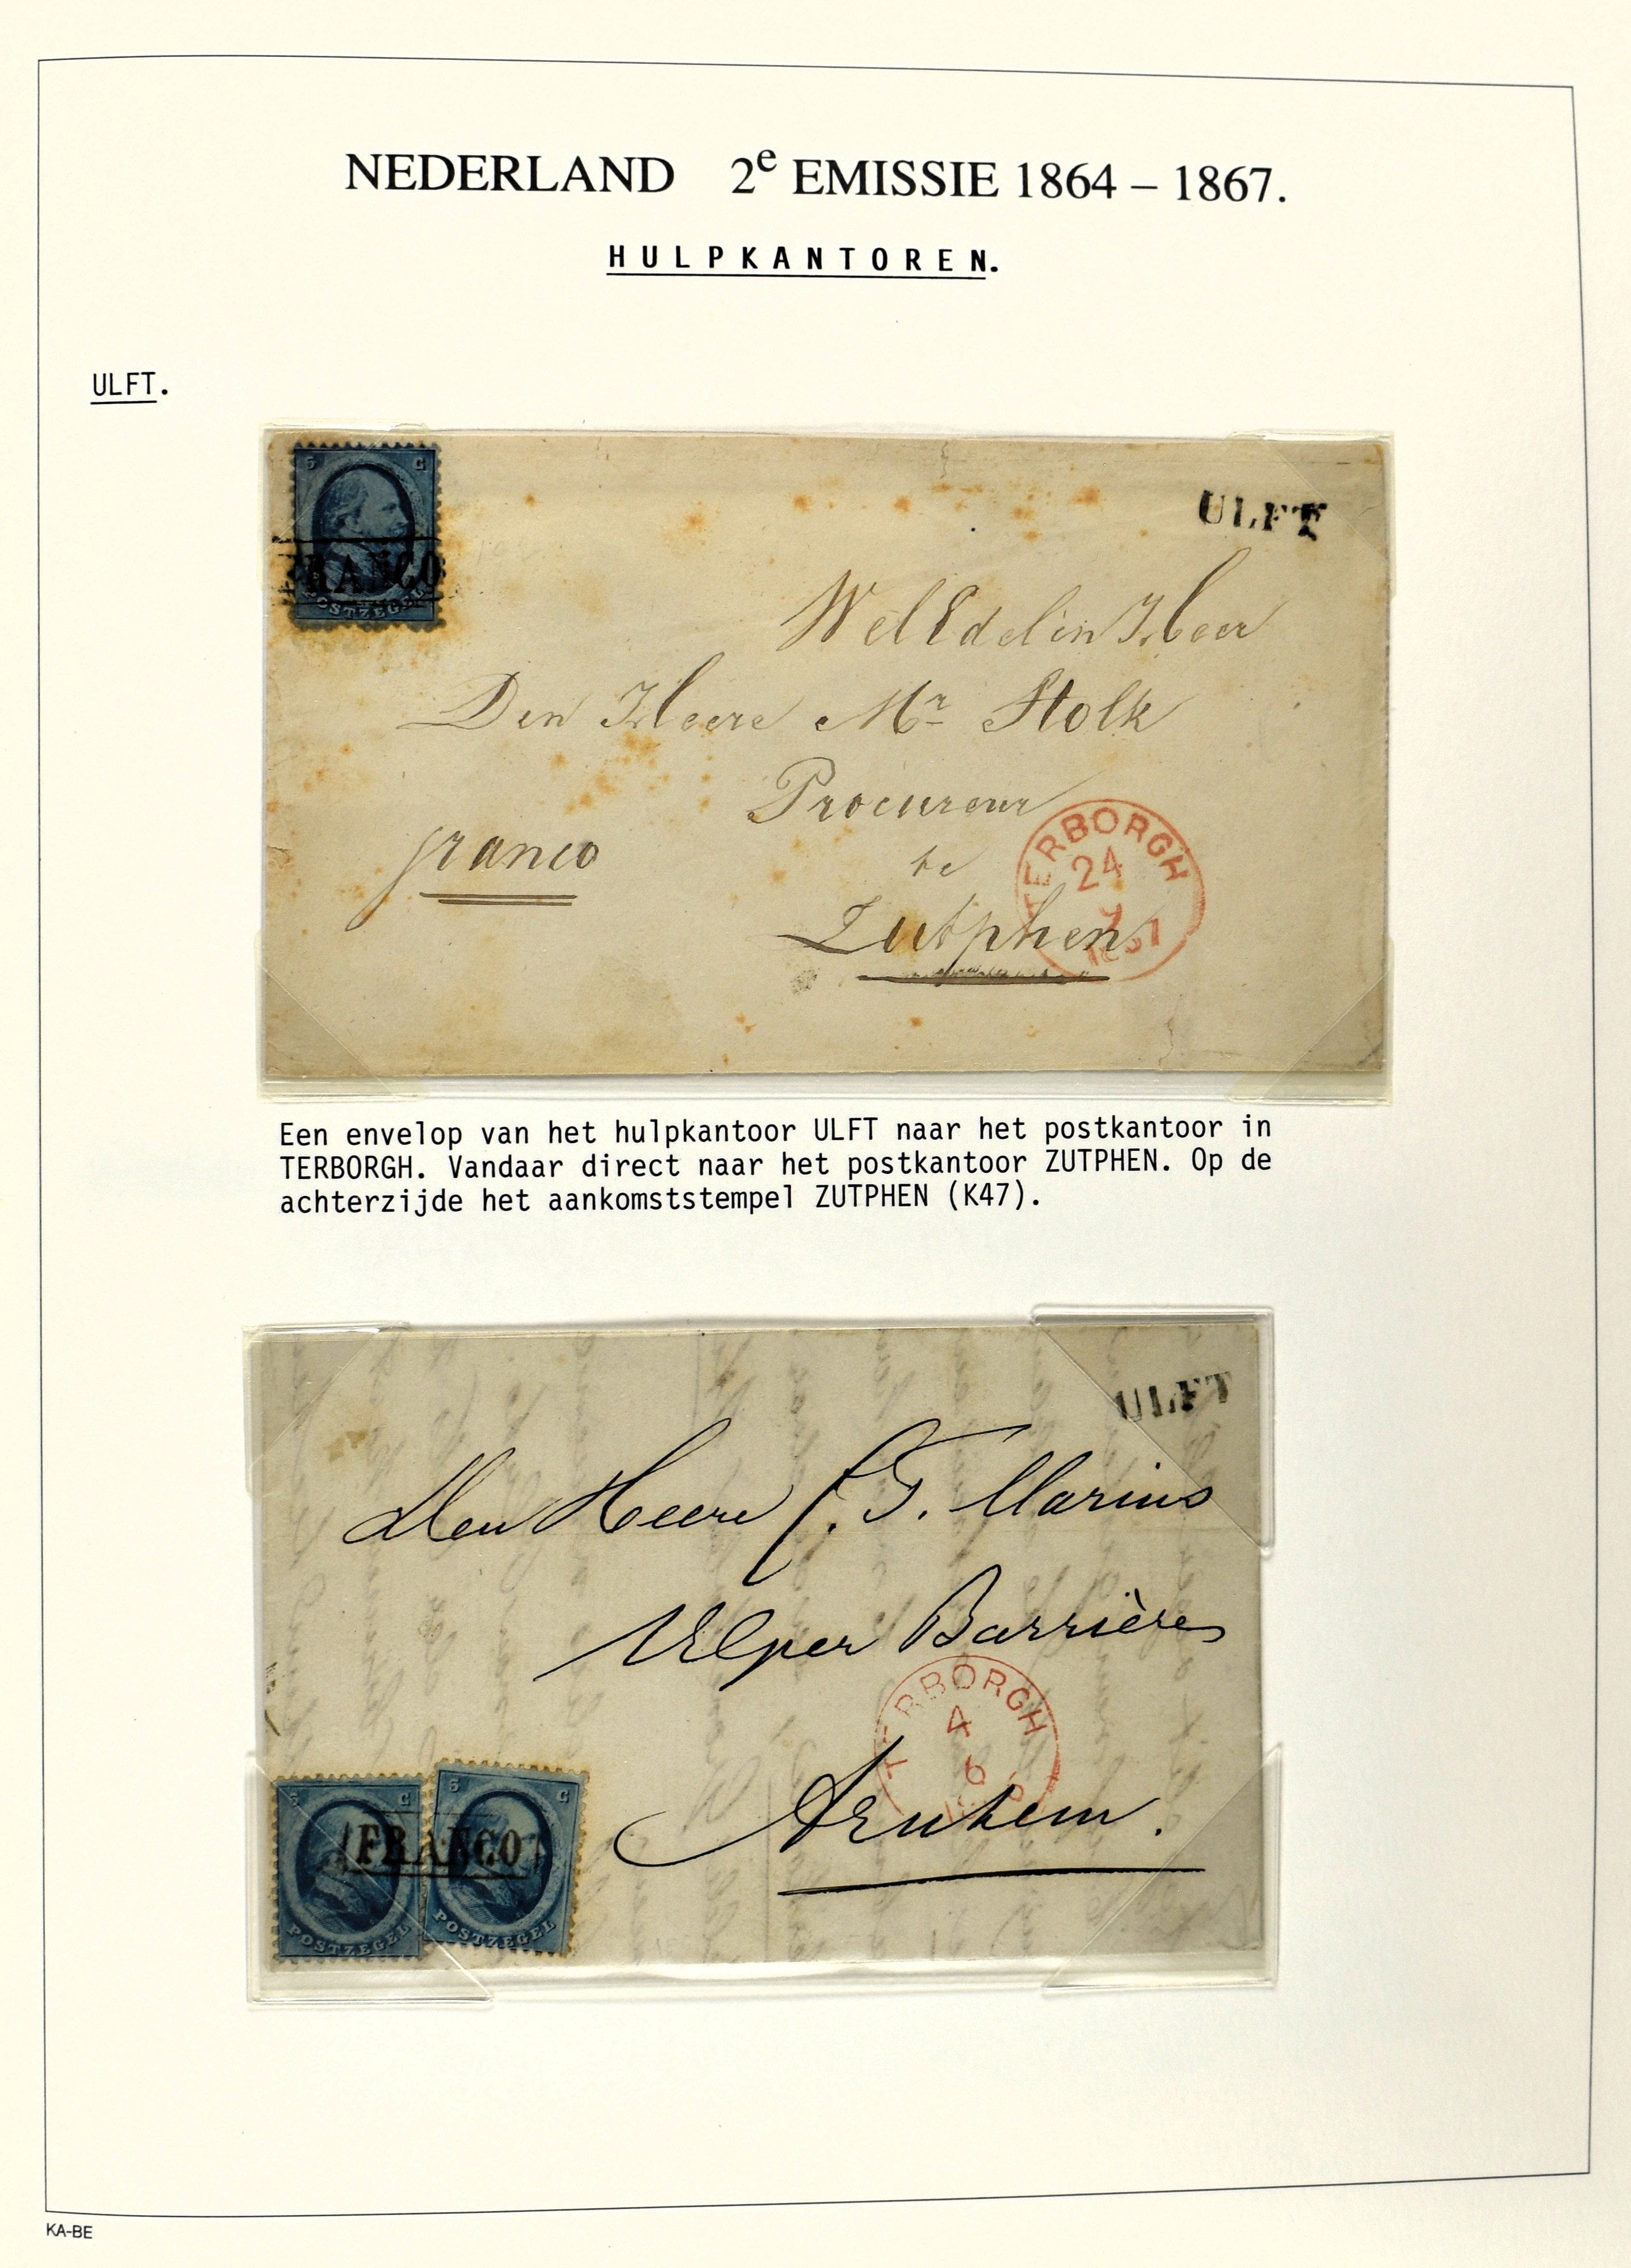 NEDERLAND 2e EMISSIE 1864 – 1867.
HULPKANTOREN.
ULFT.
5 C
FRANCO
POSTZEGEL
ULFT
WelEdelen Heer
Den Heere Mr Stolk
Procureur
franco
te
Zutphen
TERBORGH
24
1867
Een envelop van het hulpkantoor ULFT naar het postkantoor in
TERBORGH. Vandaar direct naar het postkantoor ZUTPHEN. Op de
achterzijde het aankomststempel ZUTPHEN (K47).
ULFT
Den Heere G. Marius
Velper Barrière
TERBORGH
4
6
Arnhem.
5 C
5 C
FRANCO
POSTZEGEL
POSTZEGEL
KA-BE